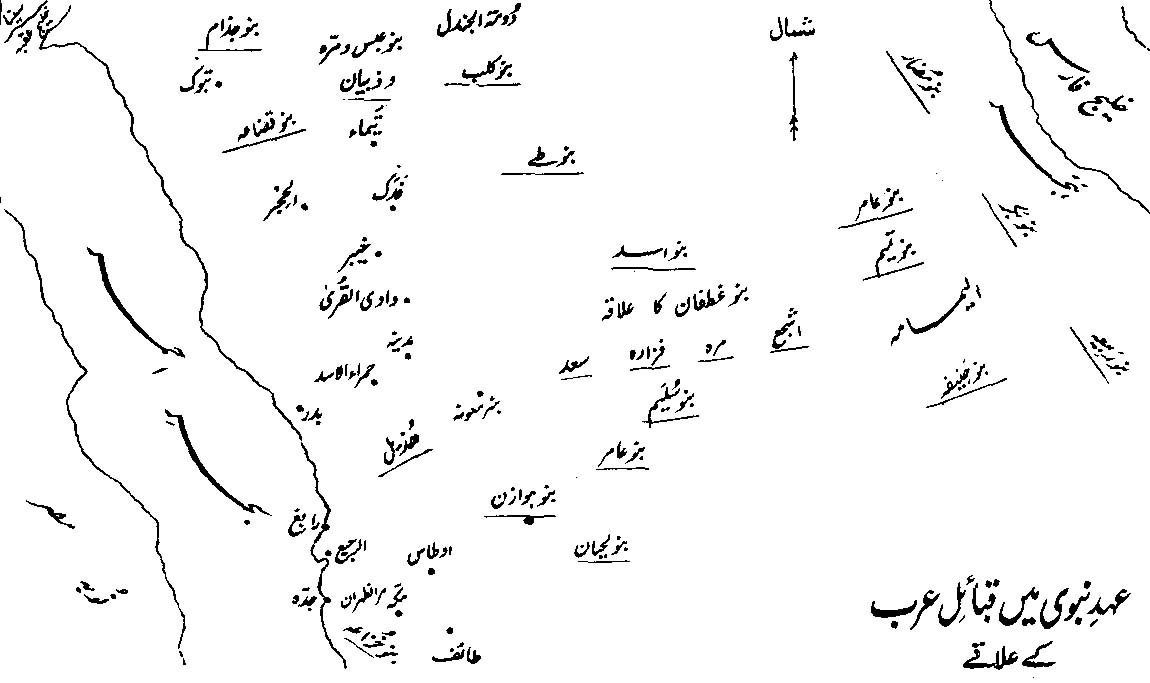 بنو جذام
دُومۃ الجندل
شمال
بنو عبس و مرّہ
و ذبیان
بنو کلب
تبوک
بنو مُضار
خلیج فارس
بنو قضاعہ
تیماء
بنو طے
فدک
الحجر
بنو عامر
بنو بکر
خیبر
بنو اسد
بنو تمیم
وادی القُریٰ
بنو غطفان کا علاقہ
الیمامہ
اشجع
مرہ
فزارہ
سعد
مدینہ
حمراء الاسد
بنو ربیعہ
بنو حنیفہ
بدر
بئر معونہ
بنو سُلَیم
ھُذیل
بنو عامر
بنو ہوازن
رابغ
الرجیع
اوطاس
بنو لحیان
جدّہ
مکّہ
مر الظہران
طائف
عہدِ نبوی میں قبائلِ عرب
کے علاقے